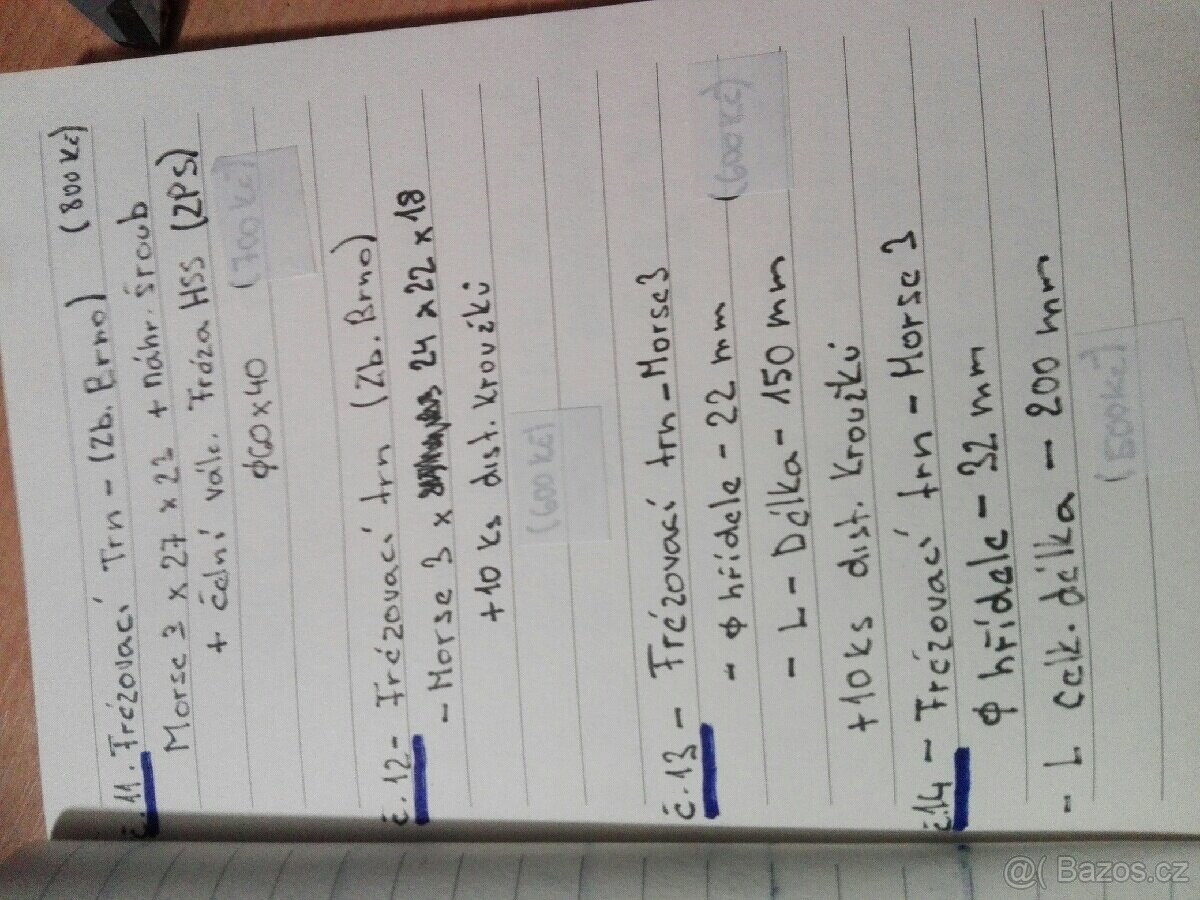 č.11. Frézovací Trn - (Zb. Brno) (800 Kč)
Morse 3 x 27 x 22 + náhr. šroub
+ čelní válc. fréza HSS (ZPS)
ϕ60x40 (700 Kč)
č.12 - Frézovací trn (Zb. Brno)
- Morse 3 x 24 x 22 x 18
+ 10 ks dist. kroužků
(600 Kč)
č.13 - Frézovací trn - Morse3
- ϕ hřídele - 22 mm (600 Kč)
- L - Délka - 150 mm
+ 10 ks dist. kroužků
č.14 - Frézovací trn - Morse 3
ϕ hřídele - 32 mm
- L celk. délka - 200 mm
(500 Kč)
@( Bazos.cz